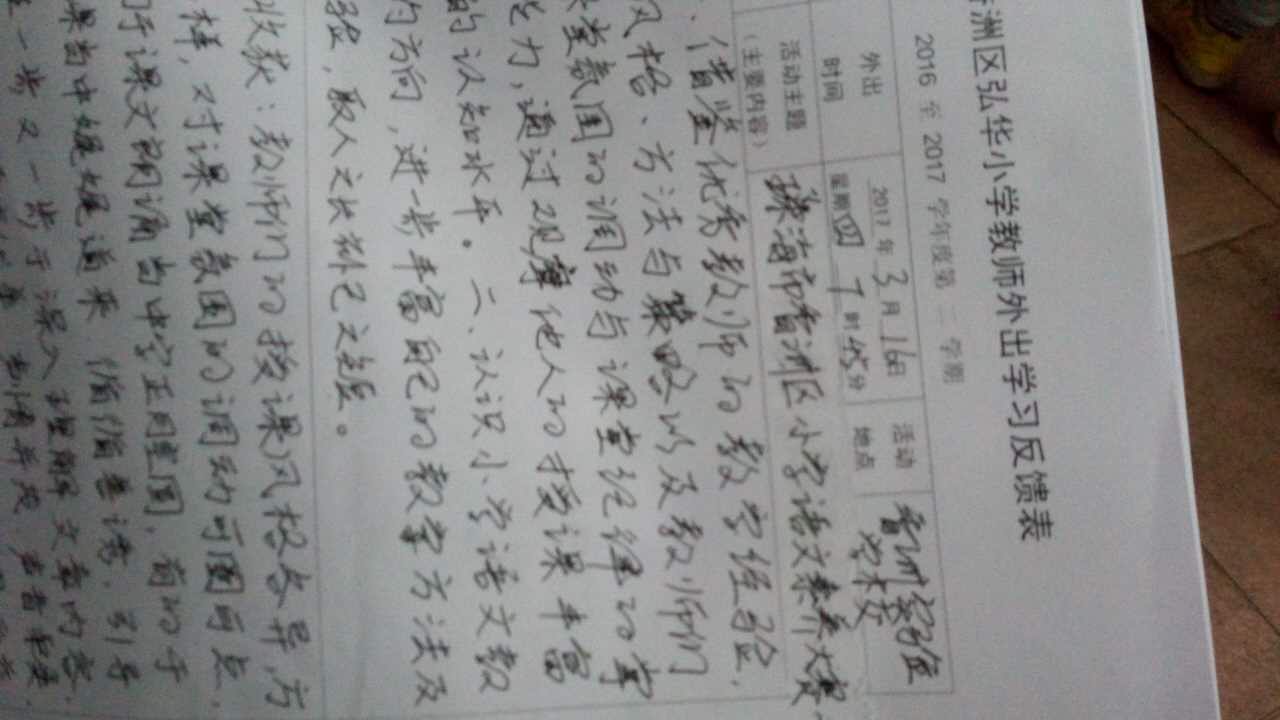 洲区弘华小学教师外出学习反馈表
2016 至 2017 学年度第 二 学期
外出
时间
2017 年 3 月 16 日
星期四 7 时 45 分
活动
地点
香洲
活动主题
（主要内容）
珠海市香洲区小学语文素养大赛
、借鉴优秀教师的教学经验、
风格、方法与策略以及教师们
堂氛围的调动与课堂纪律的掌
力，通过观摩他人的授课丰富
的认知水平。二、认识小学语文教
方向，进一步丰富自己的教学方法及
验，取人之长补己之短。
收获：教师们的授课风格各异，方
样，对课堂氛围的调动可圈可点。
于课文朗诵当中字正腔圆，有的于
果当中娓娓道来 循循善诱，引导
一步又一步于深入理解文章内容